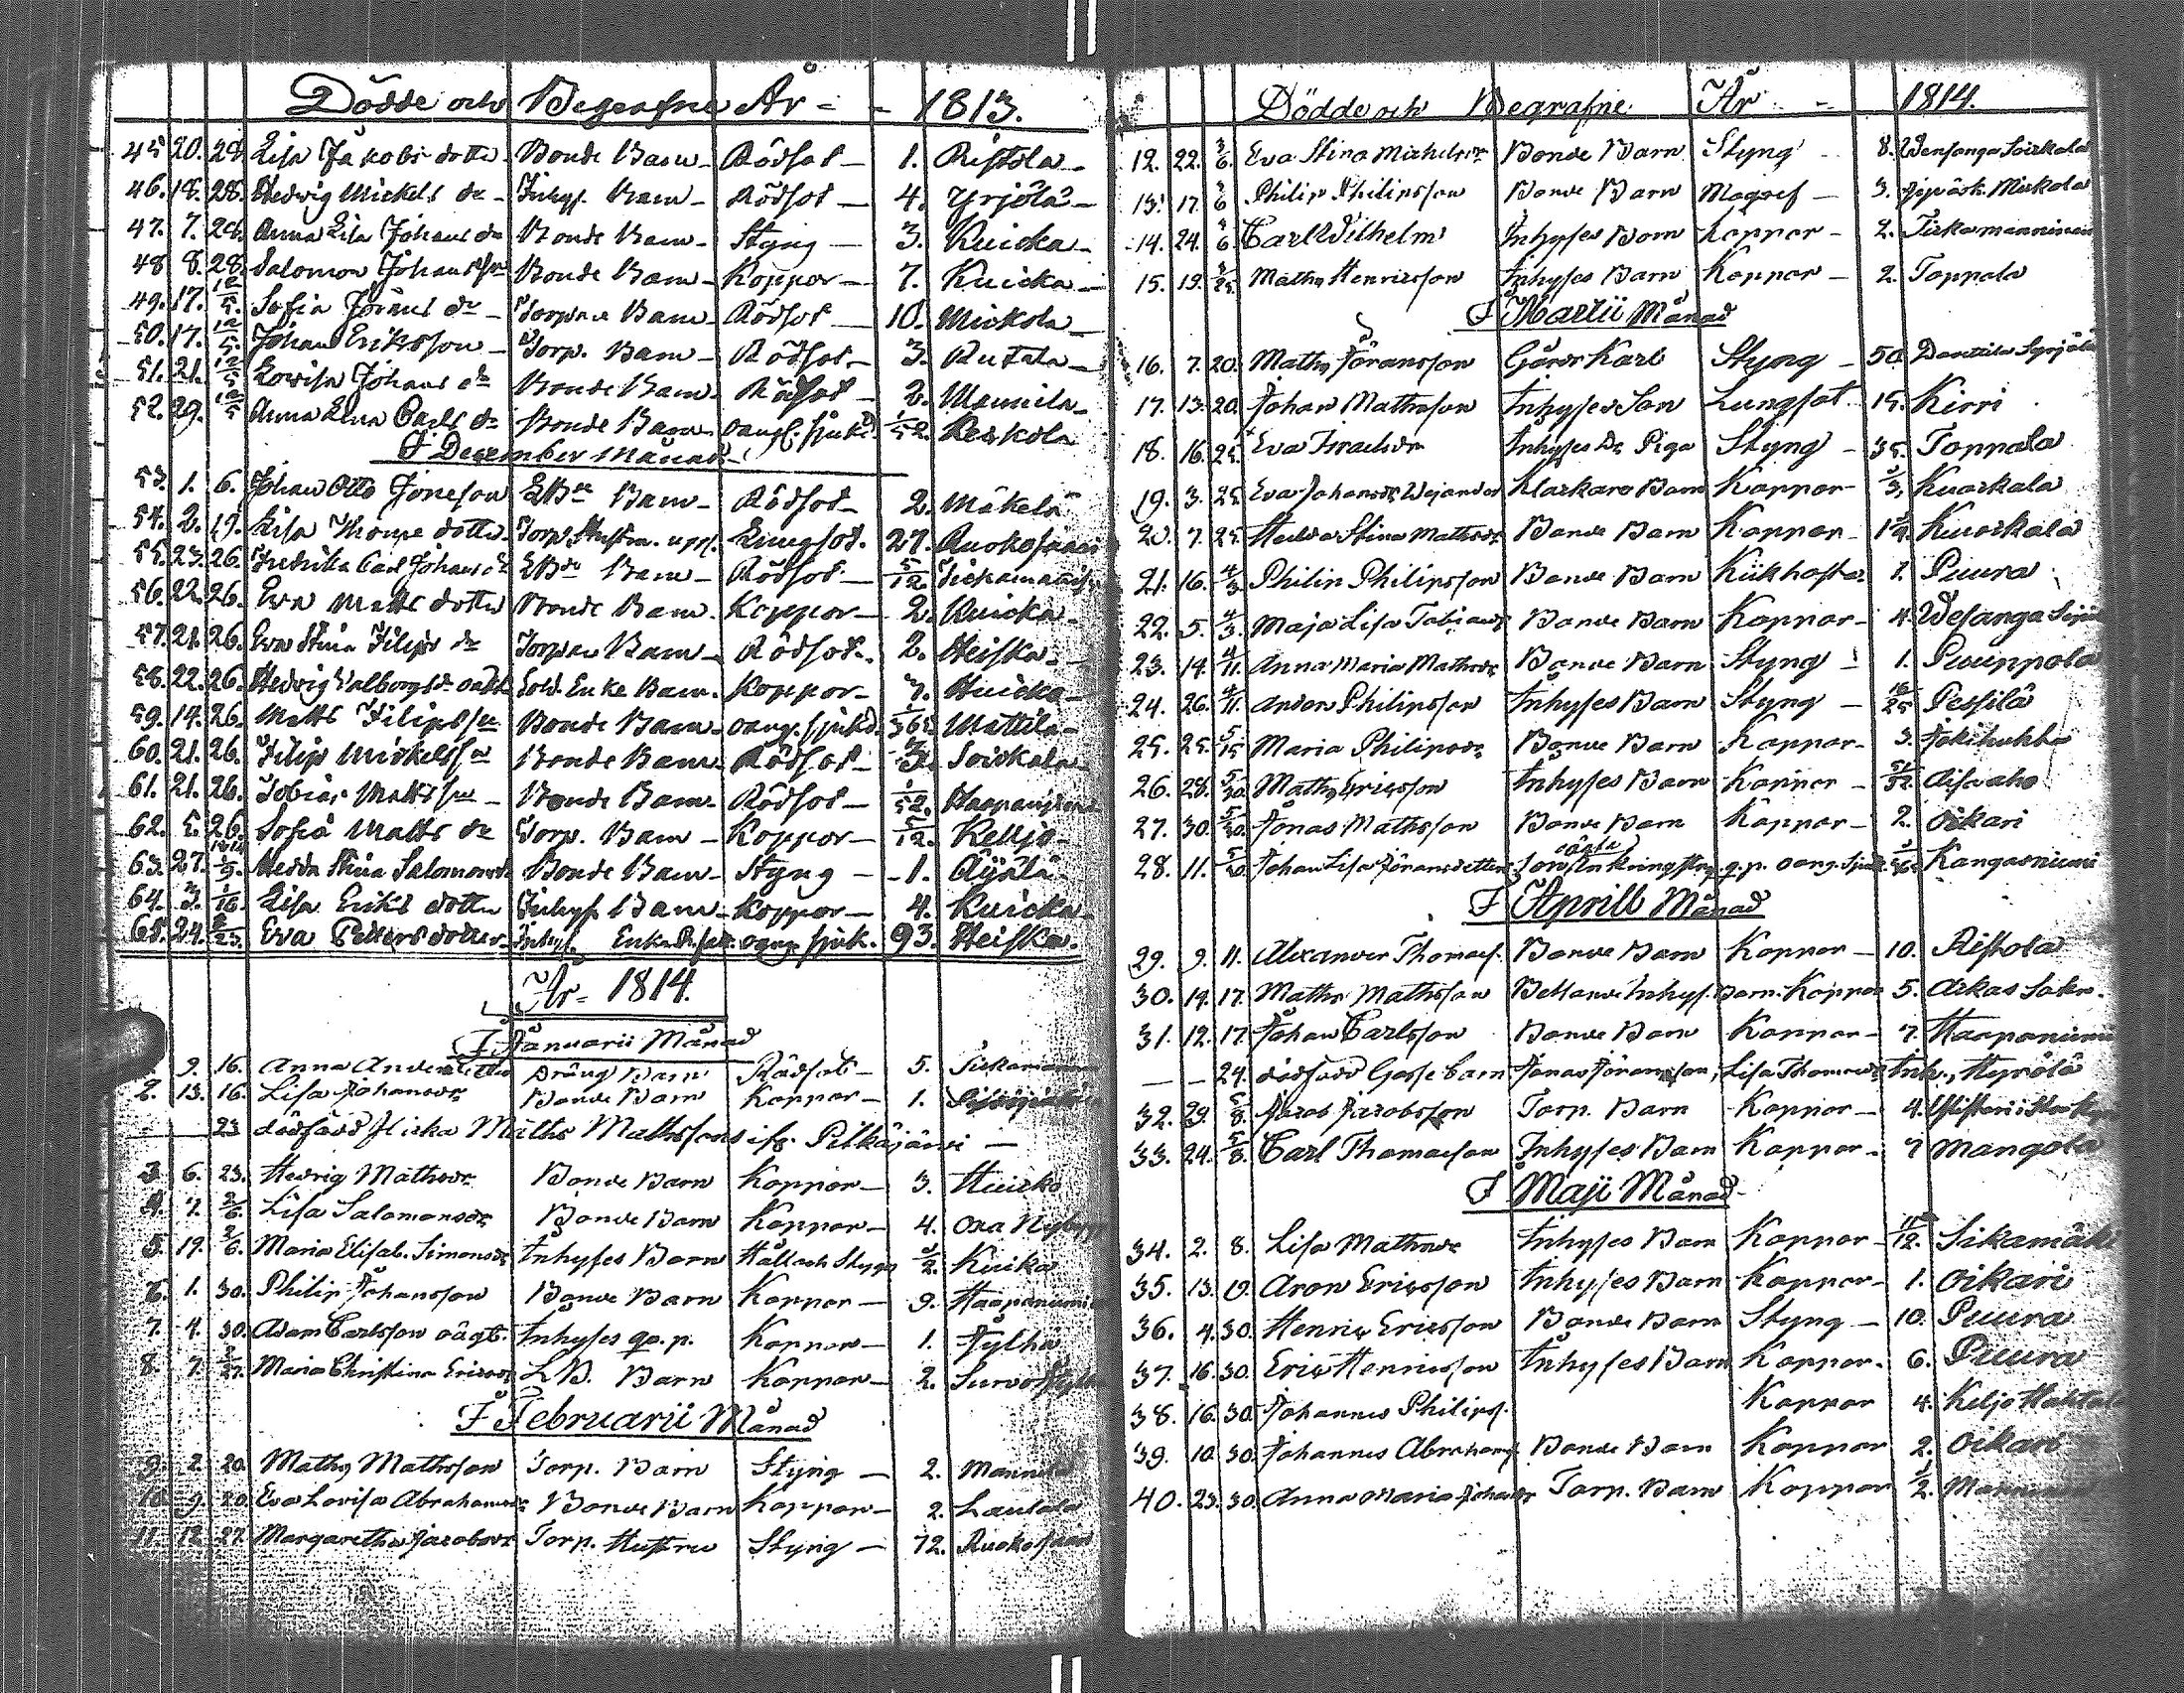 Dödde och Begrafne År - - 1813.
45 20. 28. Lisa Jakobs dotter Bonde Barn Rödsot 1. Ristola
46. 18. 28. Hedvig Mickels dr Inhys. Barn Rödsot 4. Yrjölä
47. 7. 28. Anna Lisa Johans dr Bonde Barn Styng 3. Kuicka
48 8. 28. Salomon Johansson Bonde Barn Koppor 7. Kuicka
49. 17. 12/5. Sofia Jörans dr Torpare Barn Rödsot 10. Mickola
50. 17. 12/5. Johan Eriksson Torp. Barn Rödsot 3.
51. 21. 12/5 Lovisa Johans dr Bonde Barn Rödsot 2.
52. 29. 12/5 Anna Lena Carls dr Bonde Barn oangf. sjukd. 1/52.
I December Månad
53. 1. 6. Johan Otto Jöransson Barn Rödsot 2. Mäkelä
54. 2. 19. Lisa Thomas dotter Torp. Hustru Lungsot. 27. Ruokosaari
55. 23. 26. Fredrika Carl Johans dr Barn Rödsot 5/12.
56. 22. 26. Eva Matts dotter Bonde Barn Koppor 2. Kuicka
57. 21. 26. Eva Stina Filips dr Torpare Barn Rödsot 2. Heiska
58. 22. 26. Hedvig Valborgs dr oäkta Sold. Enke Barn. Koppor 7. Kuicka
59. 14. 26. Matts Filipsson Bonde Barn oang. sjukd. 1/365 Mattila
60. 21. 26. Filip Mickelsson Bonde Barn Rödsot Soickala
61. 21. 26. Tobias Mattsson Bonde Barn Rödsot 1/52. Haapaniemi
62. 5. 26. Sofia Matts dr Torp. Barn Koppor 5/12. Keljo
63. 27. 1814 1/9. Hedda Stina Salomonsdr Bonde Barn Styng 1. Äijälä
64. 3. 1/16. Lisa Eriks dotter Inhys. Barn Koppor 4. Kuicka
65. 24. 2/23. Eva Petters dotter Inhys. Enka oang. sjuk. 93. Heiska.
År 1814.
I Januarii Månad
9. 16. Anna Anders dotter Dräng Barn Rödsot 5.
2. 13. 16. Lisa Johansdr Bonde Barn Koppor 1.
23 dödfödd Flicka Maths Mathssons Pitkäjärvi
3 6. 23. Hedvig Mathsdr Bonde Barn Koppor 3. Kuicka
4. 7. 2/6. Lisa Salomonsdr Bonde Barn Koppor 4.
5. 19. 2/6. Maria Elisab. Simonsdr Inhyses Barn Håll och Styng 1/2. Kuika
6. 1. 30. Philip Johansson Bonde Barn Koppor 9. Haapaniemi
7. 4. 30. Adam Carlsson oägt. Inhyses qv. p. Koppor 1. Jylhä
8. 7. 2/27. Maria Christina Ericsdr L.B. Barn Koppor 2.
I Februarii Månad
9. 2. 20. Maths Mathsson Torp. Barn Styng 2. Mannila
10. 9. 20. Eva Lovisa Abrahamsdr Bonde Barn Koppor 2. Lautala
11. 12. 27. Margaretha Jacobsdr Torp. Hustru Styng 72. Ruokosaari
Dödde och Begrafne År - 1814.
12. 22. 3/6. Eva Stina Michelsdr Bonde Barn Styng 8. Vesanga Soickala
13. 17. 3/6 Philip Philipsson Bonde Barn Magref 3. Mickola
14. 24. 3/6. Carl Wilhelm Inhyses Barn Koppor 2. Tickamannimäki
15. 19. 3/25. Maths Henricsson Inhyses Barn Koppor 2. Toppala
I Martii Månad
16. 7. 20. Maths Jöransson Gårds Karl Styng 50.
17. 13. 20. Johan Mathsson Inhyses Son Lungsot 15. Kirri
18. 16. 25. Eva Israelsdr Inhyses Dr Piga Styng 35. Toppala
19. 3. 25. Eva Johansdr Klockare Barn Koppor 3. Kuockala
20. 7. 25. Hedda Stina Mathsdr Bonde Barn Koppor Kuockala
21. 16. 4/3 Philip Philipsson Bonde Barn Kükhosta 1. Puura
22. 5. 4/3. Maja Lisa Tobiasdr Bonde Barn Koppor 4. Vesanga
23. 14. 4/11. Anna Maria Mathsdr Bonde Barn Styng 1. Puuppola
24. 26. 4/11. Anders Philipsson Inhyses Barn Styng Pessilä
25. 25. 5/15 Maria Philipsdr Bonde Barn Koppor 3. Jokihuhta
26. 28. 5/30. Maths Ericsson Inhyses Barn Koppor
27. 30. 5/30. Jonas Mathsson Bonde Barn Koppor 2. Oikari
28. 11. Johan Lisa Jöransdotters oäkta q. p. oang. Sjuk. Kangasniemi
I Aprill Månad
29. 9. 11. Alexander Thomass. Bonde Barn Koppor 10. Ristola
30. 14. 17. Maths Mathsson Bettlande Inhys. Barn Koppor 5.
31. 12. 17. Johan Carlsson Bonde Barn Koppor 7. Haapaniemi
— — 24. dödfödd Gosse barn Jonas Jöransson, Lisa Thomasdr Inh., Heposlä
32. 29. 5/8. Jacob Jacobsson Torp. Barn Koppor 4.
33. 24. 5/8. Carl Thomasson Inhyses Barn Koppor 7 Mangola
I Maji Månad
34. 2. 8. Lisa Mathsdr Inhyses Barn Koppor 11/12. Sikamäki
35. 13. 19. Aron Ericsson Inhyses Barn Koppor 1. Oikari
36. 4. 30. Henric Ericsson Bonde Barn Styng 10. Puura
37. 16. 30. Eric Henricsson Inhyses Barn Koppor 6. Puura
38. 16. 30. Johannes Philips. Koppor 4. Keljo Hahtola
39. 10. 30. Johannes Abrahams. Bonde Barn Koppor 2. Oikari
40. 23. 30. Anna Maria Johansdr Torp. Barn Koppor 1/2.